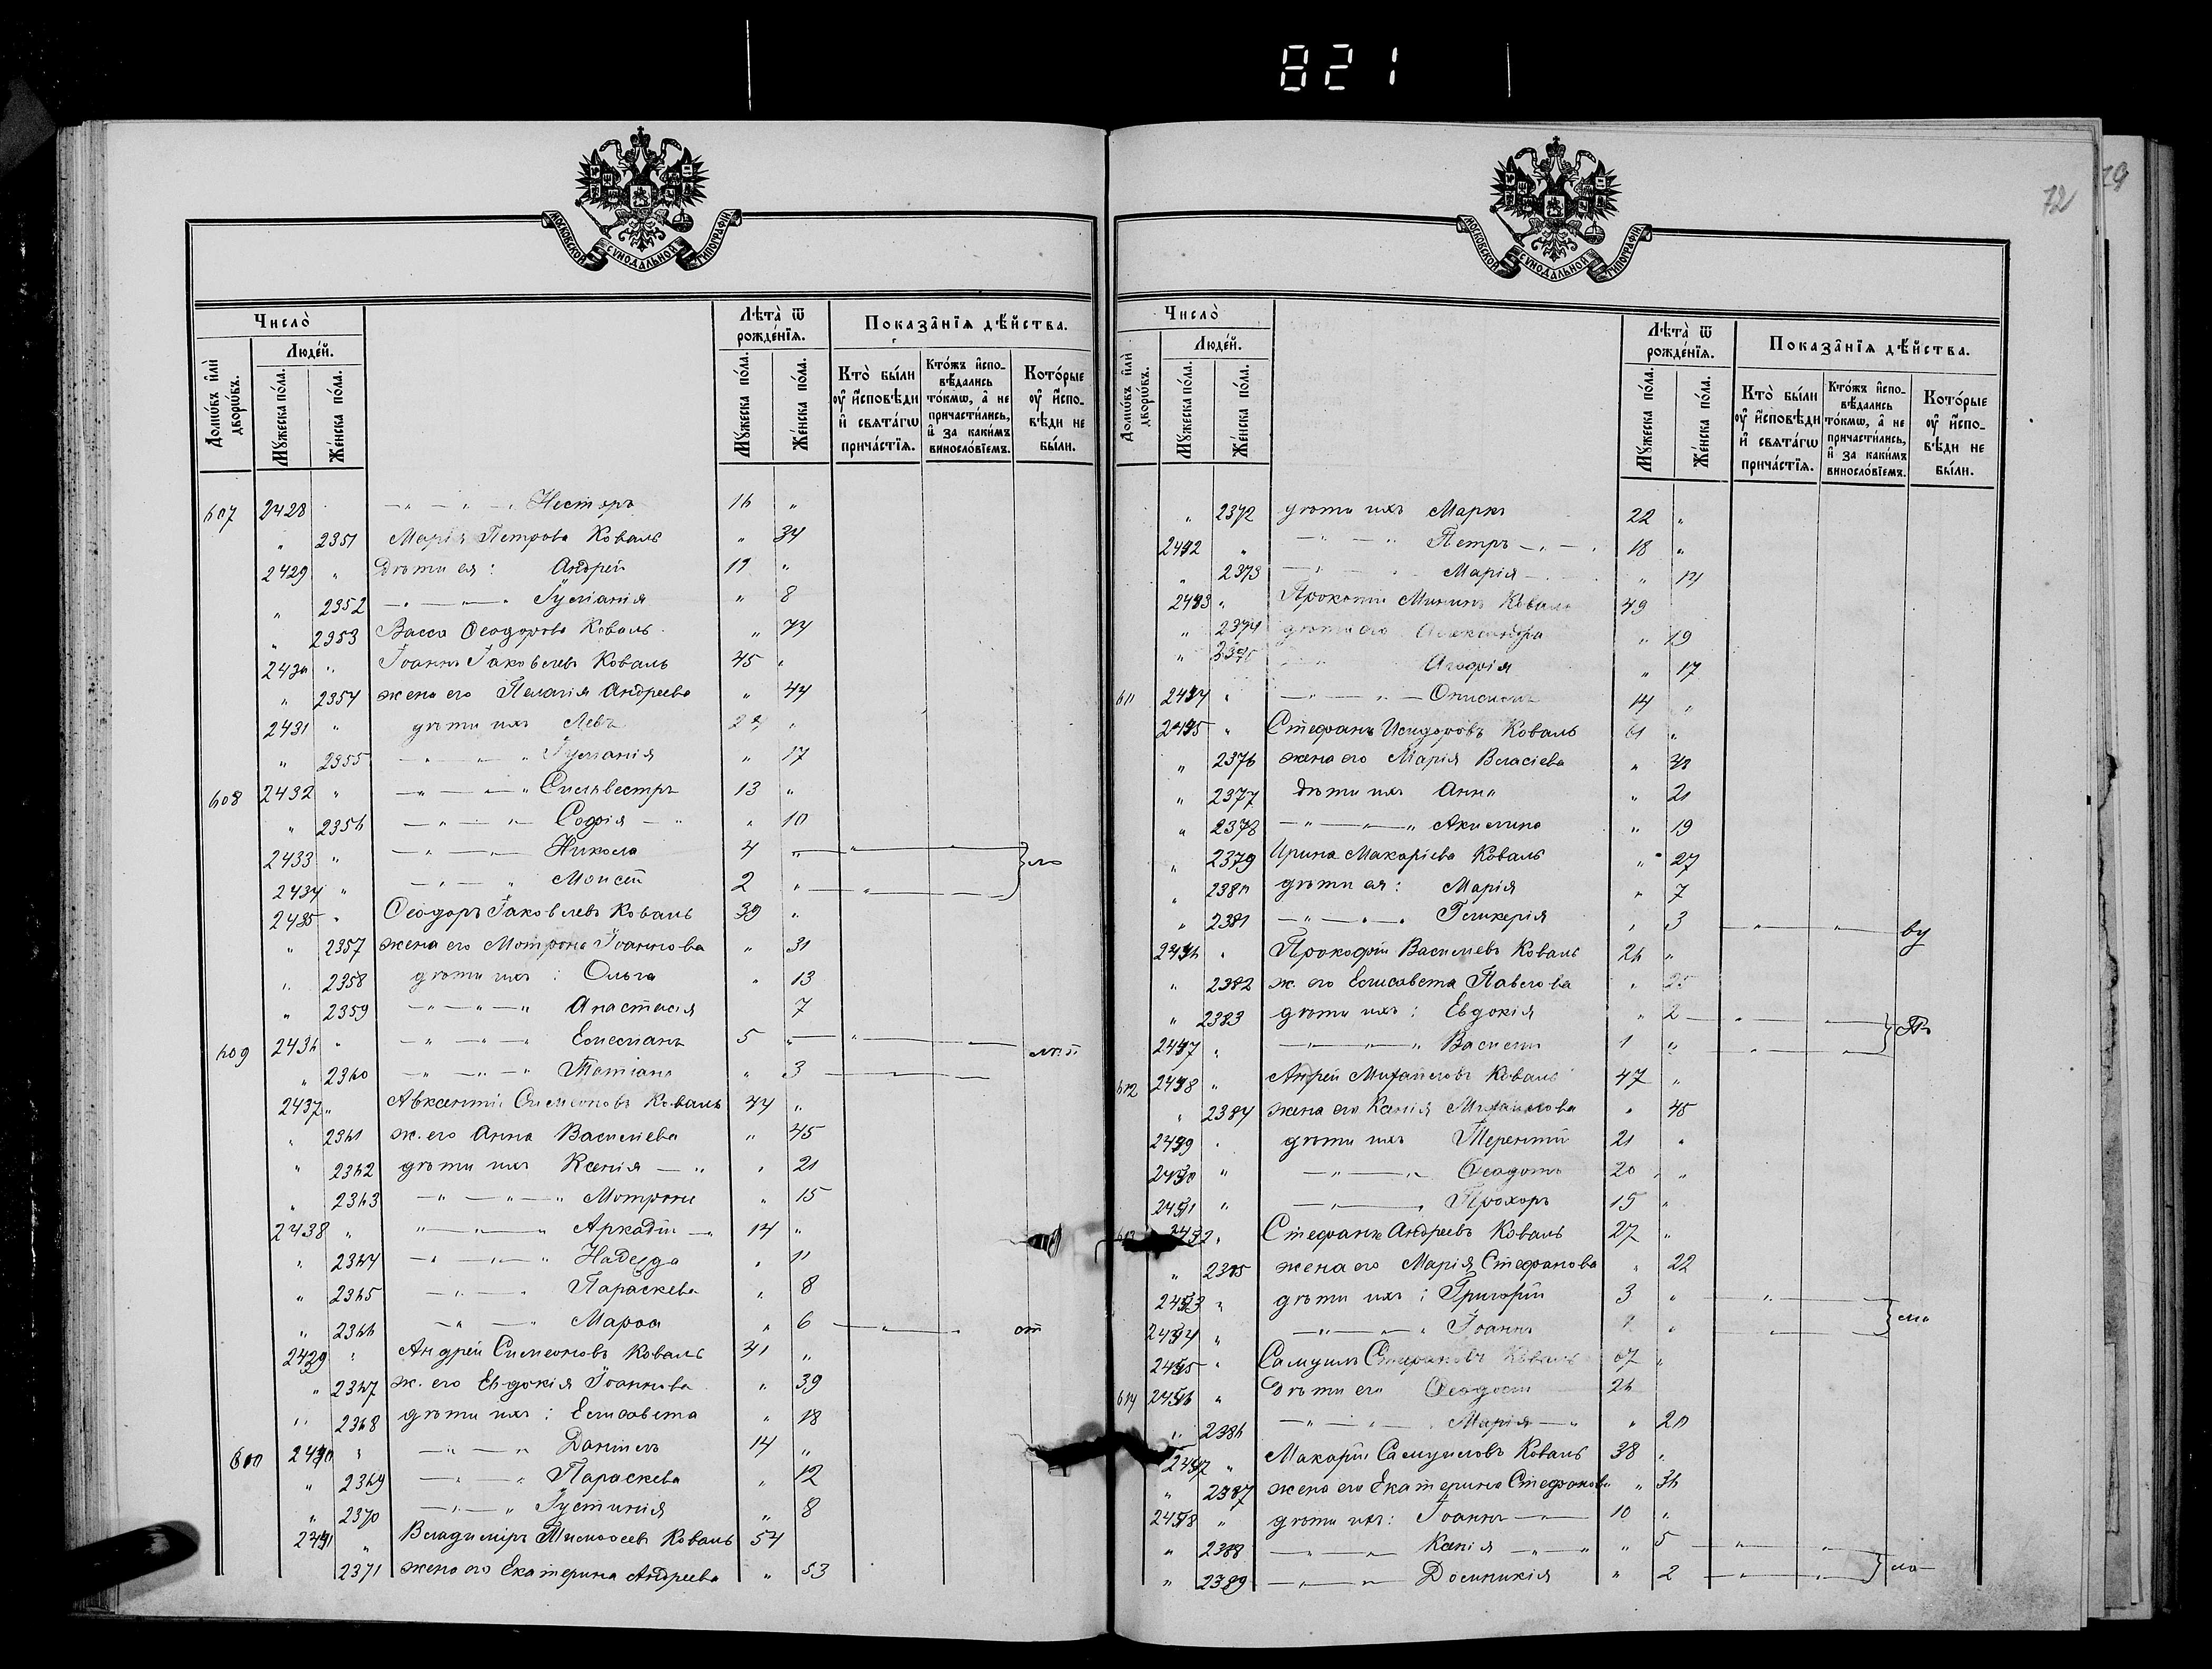 821
МОСКОВСКОЙ СѴНОДАЛЬНОЙ ТИПОГРАФІИ
Число̀
Люде́й.
Домѡ́въ и҆лѝ дворѡ́въ.
Мꙋ́жеска по́ла.
Же́нска по́ла.
Лѣта̀ ѿ рожде́нїѧ.
Мꙋ́жеска по́ла.
Же́нска по́ла.
Показа̑нїѧ дѣ́йства.
Кто̀ бы́ли ᲂу҆ и҆́сповѣди и҆ свѧта́гѡ прича́стїѧ.
Кто́жъ и҆спо- вѣ́дались то́кмѡ, а҆ не причасти́лись, и҆ за каки́мъ виносло́вїемъ.
Кото́рые ᲂу҆ и҆́спо- вѣди не бы́ли.
607 2428 — " — " — " Несторъ 16 "
" 2351 Марія Петрова Коваль " 34
2429 " Дѣти ея: Андрей 11 "
" 2352 — " — " — " Іуліанія " 8
" 2353 Васса Ѳеодорова Коваль " 74
2430 " Іоаннъ Іаковлевъ Коваль 45 "
" 2354 жена его Пелагія Андреева " 44
2431 " дѣти ихъ Левъ "
" 2355 — " — " — " Іуліанія " 17
608 2432 " — " — " — " Сильвестръ 13 "
" 2356 — " — " — Софія — " " 10
2433 " — " — " — Никола 4 " — " —
2434 " — " — " Моисей 2 " — " —
2435 " Ѳеодоръ Іаковлевъ Коваль 39 "
" 2357 жена его Мотрона Іоаннова " 31
" 2358 дѣти ихъ: Ольга " 13
" 2359 — " — " — " Анастасія 7
609 2436 " — " — " — " Емеліанъ 5 " — " —
" 2360 — " — " — " Татіана " 3 —
2437 " Авксентій Симеоновъ Коваль 44 "
" 2361 ж. его Анна Василіева " 45
" 2362 дѣти ихъ Ксенія — " " 21
" 2363 — " — " — " Мотрона " 15
2438 " " — " — " Аркадій — " 14 "
" 2364 — " — " — " Надежда " 11
" 2365 — " — " Параскева " 8
" 2366 — " — " Марѳа " 6 — " — " от
2429 " Андрей Симеоновъ Коваль 41 "
" 2367 ж. его Евдокія Іоаннова " 39
" 2368 дѣти ихъ: Елисавета " 18
610 2430 " — " — " Даніилъ 14 "
" 2369 — " — " Параскева " 12
" 2370 — " — " Іустинія " 8
2431 " Владиміръ Тимоѳеевъ Коваль 54
2371 жена его Екатерина Андреева " 53
72
МОСКОВСКОЙ СѴНОДАЛЬНОЙ ТИПОГРАФІИ
Число̀
Люде́й.
Домѡ́въ и҆лѝ дворѡ́въ.
Мꙋ́жеска по́ла.
Же́нска по́ла.
Лѣта̀ ѿ рожде́нїѧ.
Мꙋ́жеска по́ла.
Же́нска по́ла.
Показа̑нїѧ дѣ́йства.
Кто̀ бы́ли ᲂу҆ и҆́сповѣди и҆ свѧта́гѡ прича́стїѧ.
Кто́жъ и҆спо- вѣ́дались то́кмѡ, а҆ не причасти́лись, и҆ за каки́мъ виносло́вїемъ.
Кото́рые ᲂу҆ и҆́спо- вѣди не бы́ли.
" 2372 дѣти ихъ Маркъ 22 "
" — " — " Петръ — " — " 18 "
" 2373 — " — " Марія — "
" Прокопій Коваль 49
" 2374 дѣти его Александра " 19
" 2375 Агафія " 17
611 " — " — " — Онисимъ 14 "
" Стефанъ Исидоровъ Коваль 61 "
" 2376 жена его Марія Власіева "
" 2377 дѣти ихъ Анна " 21
" 2378 — " — " — " Акилина " 19
" 2379 Ирина Макаріева Коваль " 27
" 2380 дѣти ея: Марія " 7
" 2381 — " — " — " Гликерія " 3 — " — " — ву
" Прокофій Василіевъ Коваль 26 "
" 2382 ж. его Елисавета Павлова " 25
" 2383 дѣти ихъ: Евдокія " 2 — " —
" — " — " — " Василій 1 " — " —
612 " Андрей Михайловъ Коваль 47 "
" 2384 жена его Ксенія Михайлова " 45
" дѣти ихъ Терентій 21 "
" — " — " Ѳеодотъ 20 "
" — " — " Прохоръ 15 "
613 " Стефанъ Андреевъ Коваль 27 "
" 2385 жена его Марія Стефанова " 22
" дѣти ихъ: Григорій 3 " — " —
" — " — " — " Іоаннъ " — " —
" Самуилъ Стефановъ Коваль 67 "
614 " Дѣти его Ѳеодосій 26
" 2386 — " — " — " Марія — " " 20
" Макарій Самуиловъ Коваль 38 "
" 2387 жена его Екатерина Стефанова " 36
" дѣти ихъ: Іоаннъ — " — 10 "
" 2388 — " — " Ксенія — " — " " 5 — " — "
" 2389 — " — " Домникія " 2 — " — "